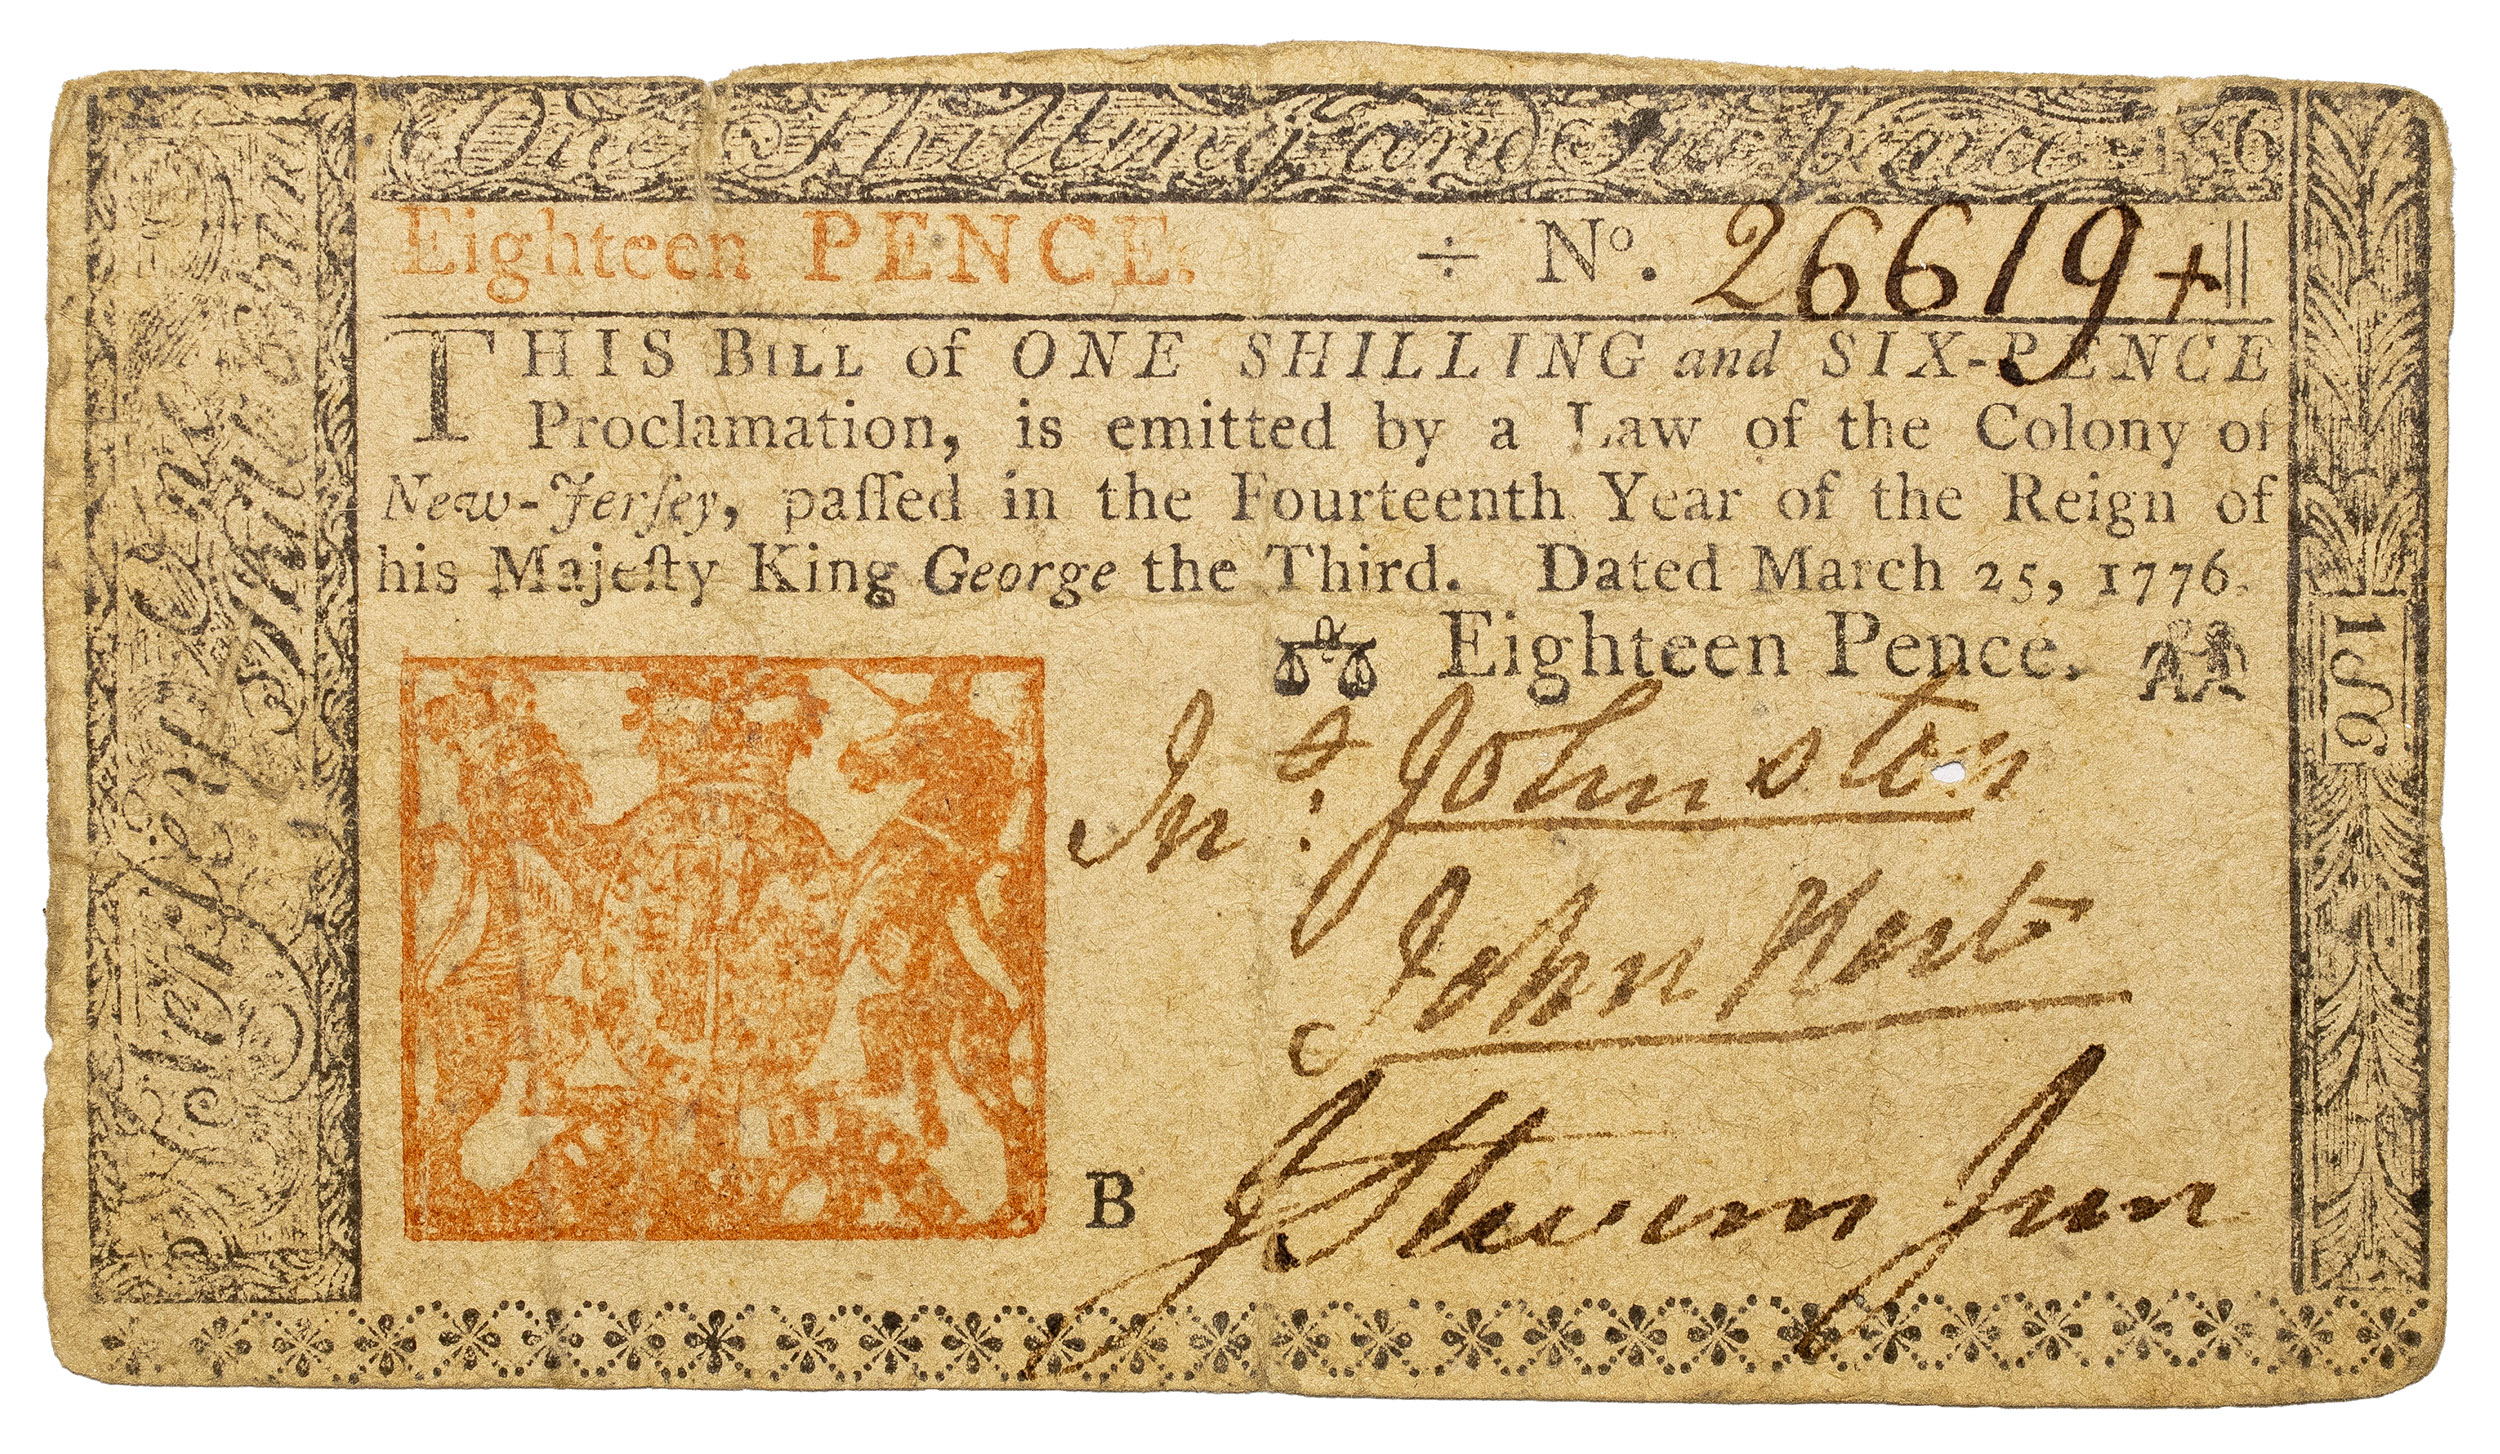 One Shilling and Six pence 1 S 6
Eighteen PENCE. ÷ No. 26619 +
THIS BILL of ONE SHILLING and SIX-PENCE
Proclamation, is emitted by a Law of the Colony of
New-Jerſey, paſſed in the Fourteenth Year of the Reign of
his Majeſty King George the Third. Dated March 25, 1776.
Eighteen Pence.
Jno. Johnston
John Hart
J Stevens Jun
B
One
Shill
1 S 6